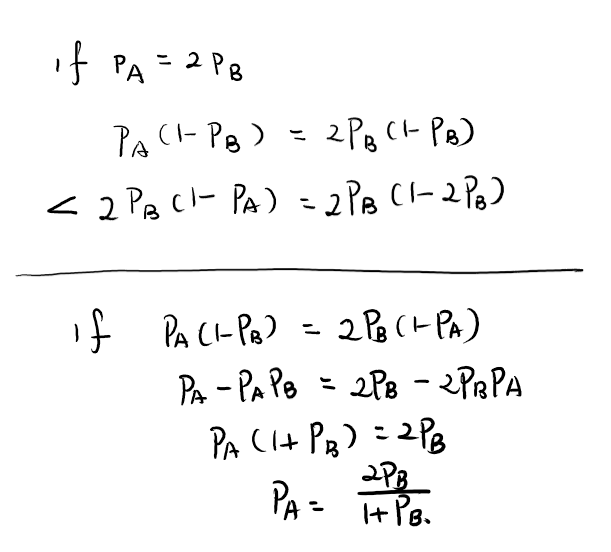 if P_A = 2 P_B
P_A (1 - P_B) = 2P_B (1 - P_B)
< 2 P_B (1 - P_A) = 2P_B (1 - 2P_B)
if P_A (1 - P_B) = 2P_B (1 - P_A)
P_A - P_A P_B = 2P_B - 2P_B P_A
P_A (1 + P_B) = 2P_B
P_A = \frac{2P_B}{1 + P_B}.